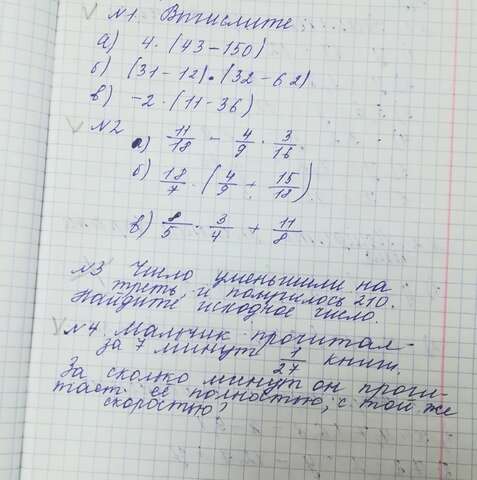 №1. Вычислите
а) 4 · (43 - 150)
б) (31 - 12) · (32 - 62)
в) -2 · (11 - 36)
№2
а) 11/18 - 4/9 · 3/16
б) 18/7 · (4/9 + 15/18)
в) 8/5 · 3/4 + 11/8
№3 Число уменьшили на
треть и получилось 210.
Найдите исходное число.
№4. Мальчик прочитал
за 7 минут 1/27 книги.
За сколько минут он прочи-
тает её полностью, с той же
скоростью?